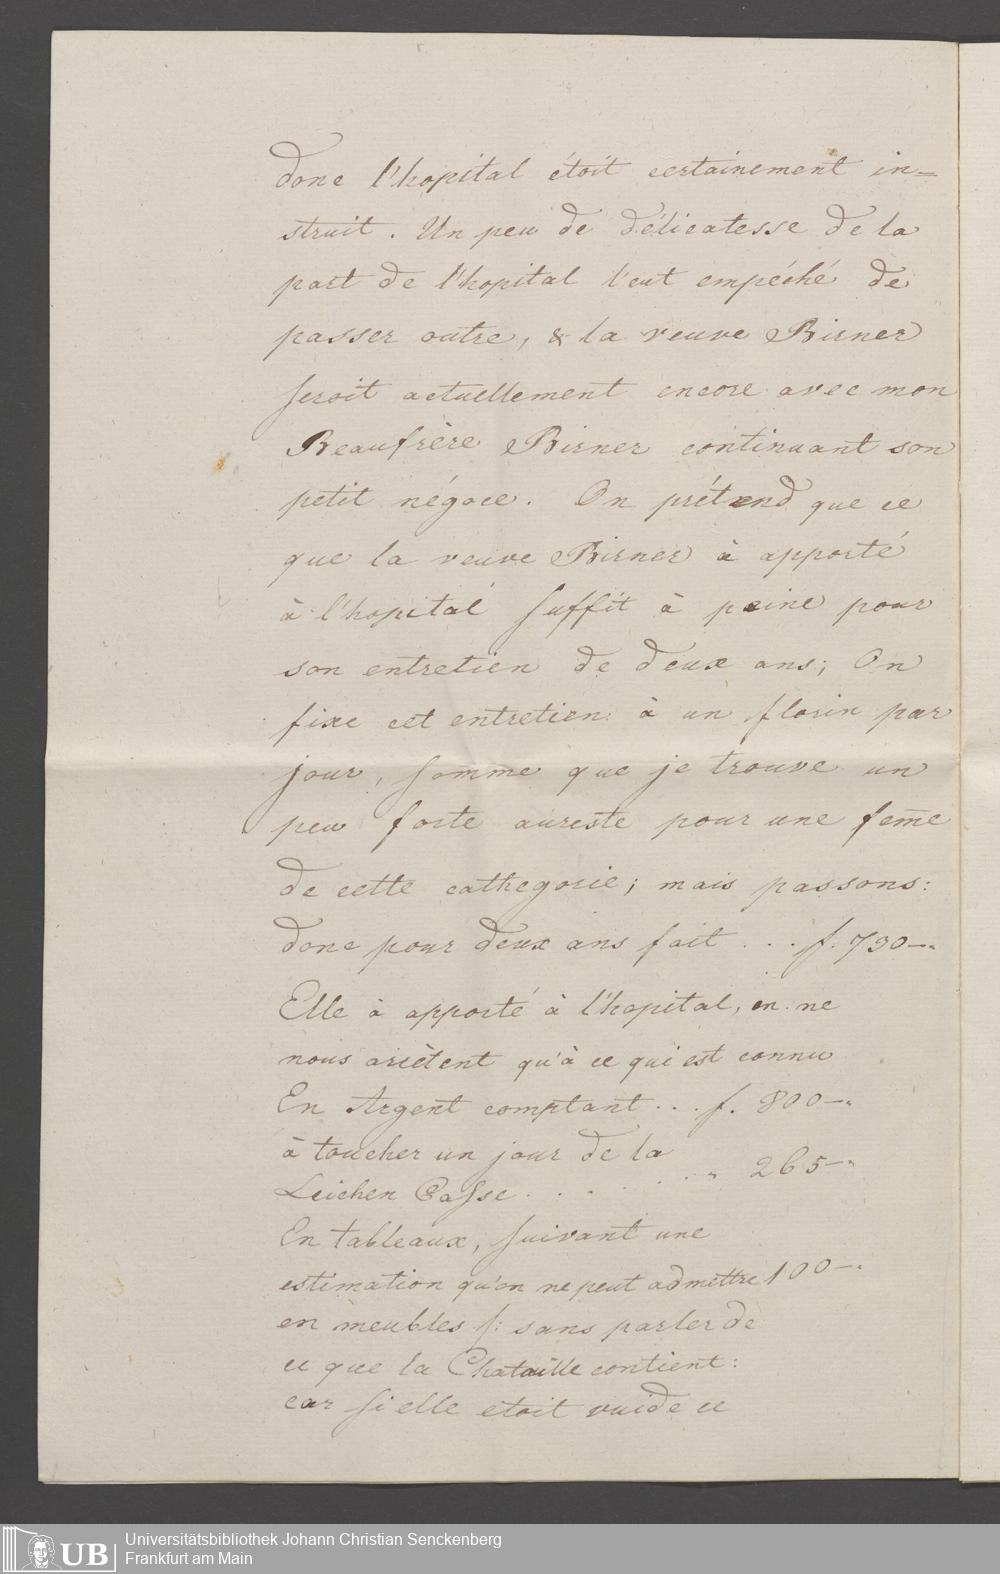 donc l'hopital étoit certainement in=
struit. Un peu de délicatesse de la
part de l'hopital l'eut empéché de
passer outre, & la veuve Birner
seroit actuellement encore avec mon
Beaufrère Birner continuant son
petit négoce. On prétend que ce
que la veuve Birner à apporté
à l'hopital suffit à peine pour
son entretien de deux ans; On
fixe cet entretien à un florin par
jour, somme que je trouve un
peu forte aureste pour une fem̅e
de cette cathegorie; mais passons:
donc pour deux ans fait . . . f. 730—"
Elle à apporté à l'hopital, en ne
nous ariètent qu'à ce qui est connu
En Argent comptant . . . f. 800—"
à toucher un jour de la
Leichen Casse . . . . . . " 265—"
En tableaux, suivant une
estimation qu'on ne peut admettre 100—"
en meubles /: sans parler de
ce que la Chataille contient:
car si elle etoit vuide ce
UB Universitätsbibliothek Johann Christian Senckenberg
Frankfurt am Main